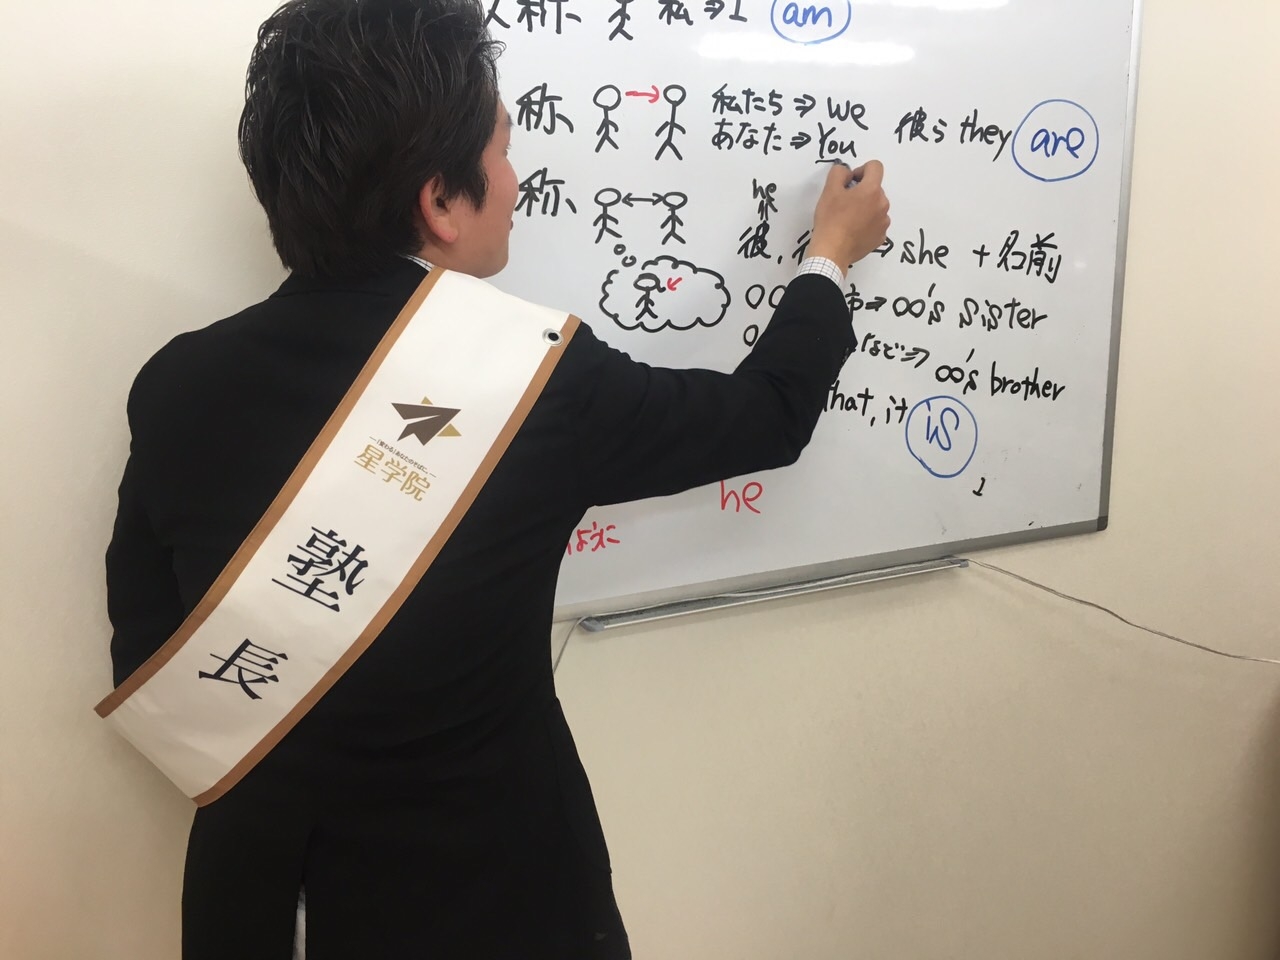 人称 私⇒I am
称 私たち⇒we 彼ら they are
あなた⇒You
称 he
彼, ⇒ she +名前
⇒○○'s sister
など⇒ ○○'s brother
that, it is
he
ように
星学院
塾長